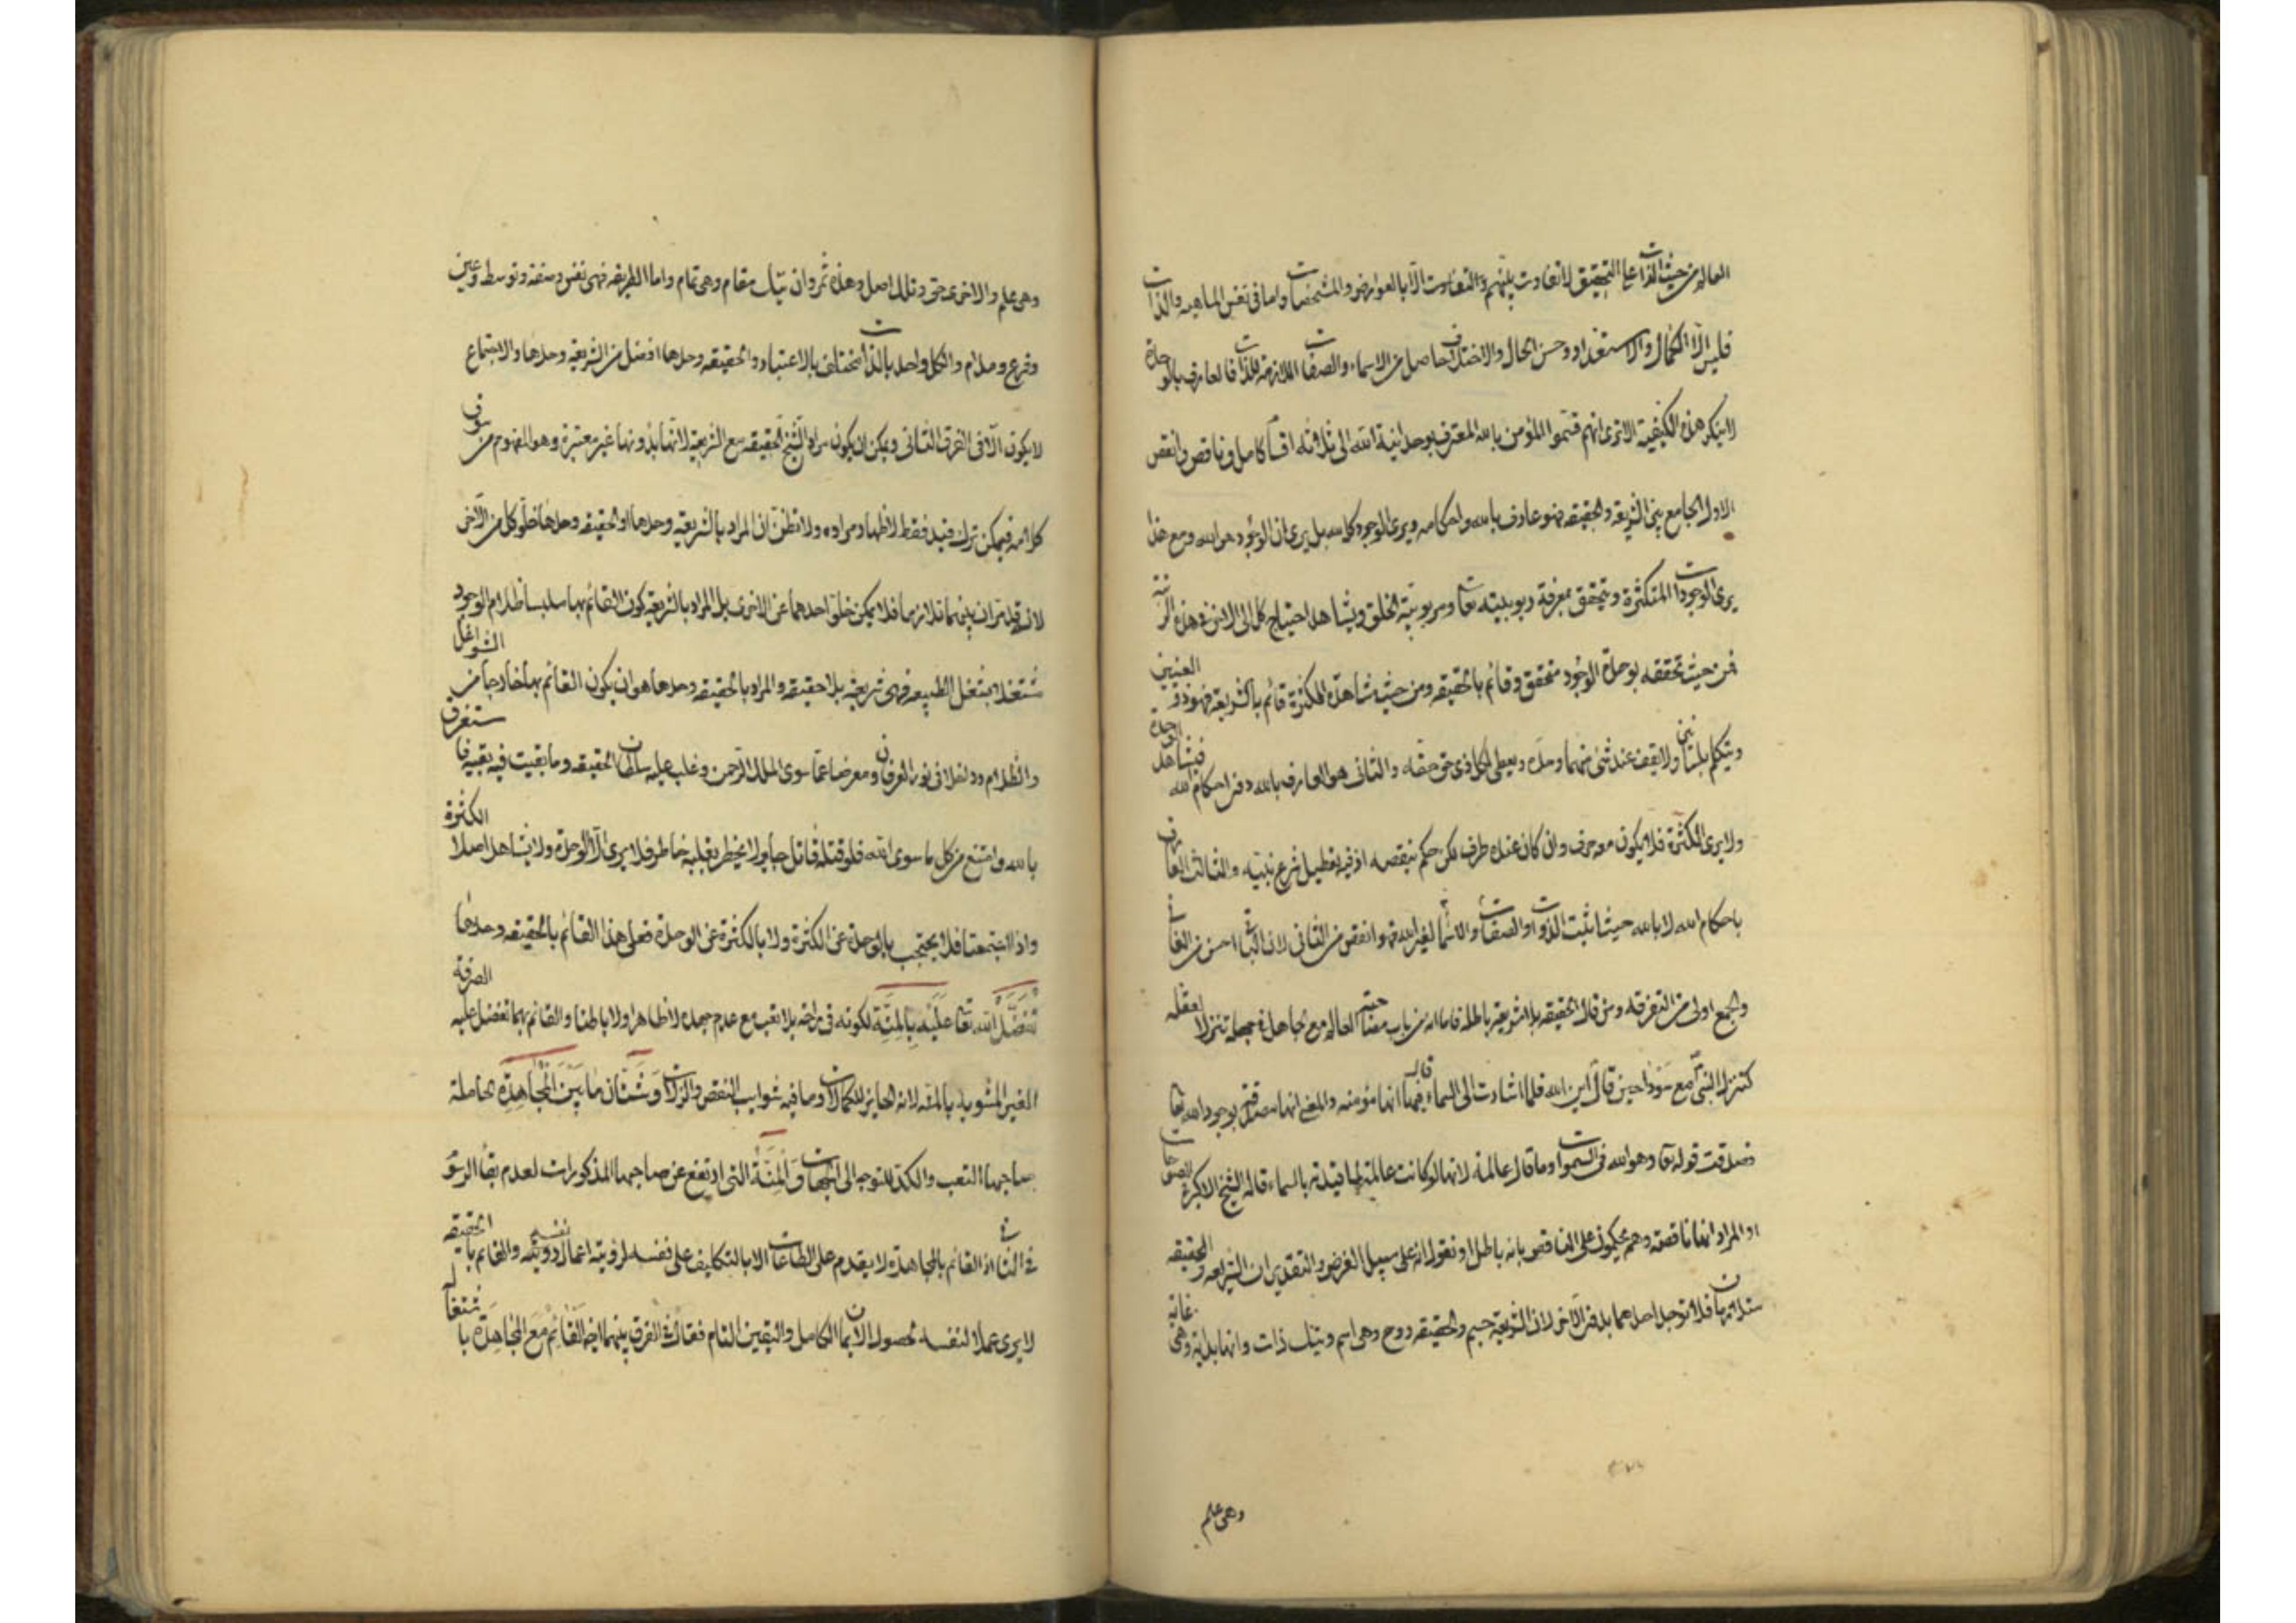 العالم من حيث الذات على التحقيق لا تفاوت بينهم والتفاوت الا بالعوارض والمشخصات واما في نفس الماهيه والذات
فليس الا الكمال والاستعداد وحسن الحال والاختلاف حاصل من الاسماء والصفات اللازمة للذات فالعارف بالوحدة
لا ينكر هذه الكيفية الا ترى انهم قسموا المؤمن بالله المعترف بوحدانية الله الى ثلاثه اقسام كامل وناقص وانقص
الاول الجامع بين الشريعة والحقيقه فهو عارف بالله واحكامه ويرى الوجود كله لله بل يرى ان الوجود هو الله ومع هذا
يرى الوجودات المتكثرة ويتحقق بمعرفة ربوبيته تعا ومربوبية الخلق ويشاهد احتياج كل الى الاخر وهذه الرتبة
فمن حيث تحققه بوحدة الوجود متحقق وقائم بالحقيقه ومن حيث مشاهدة الكثرة قائم بالشريعة فهو ذو العينين
ويتكلم بلسانين ولا يقف عند شئ منهما وحده ويعطى لكل ذى حق حقه والثانى هو العارف بالله دون احكام الله فيشاهد الوحدة
ولا يرى الكثرة فلا يكون معه حرف وان كان عنده طرف لكن حكم بنقصه اذ فيه تعطيل شرع نبيه والثالث العارف
باحكام الله لا بالله حيث اثبت الذوات والصفات والاسما لغير الله فهو انقص من الثانى لان الباقى احسن من الفانى
والجمع اولى من التفرقه ومن قال الحقيقه بلا شريعة باطلة فاما انه من باب مصاحبته العالم مع جاهل في جهله تنزلا لعقله
كتنزل النبى مع سودا حين قال اين الله فلما اشارت الى السماء قال فيها انها مؤمنه والمعنى انها مصدقة بوجود الله تعا
فصدقت قوله تعا وهو الله فى السموات وما قال عالمة لانها لو كانت عالمة لما قيدته بالسماء قاله الشيخ الاكبر
او المراد انها ناقصة وهم يحكمون على الناقص بانه باطل او نقول انه على سبيل الفرض والتقدير ان الشريعه والحقيقه
متلازمان فلا توجد احدهما بدون الاخر لان الشريعة جسم والحقيقه روح وهى اسم وتيك ذات وانها بداية وهى غاية
وهى علم
وهى علم والاخرى حق وتلك اصل وهذه ثمر وان تيك مقام وهى تمام واما الطريقه فهى نفس وصفة وتوسط وعين
وفرع ومدام والكل واحد بالذات مختلف بالاعتبار والحقيقه وحدها افضل من الشريعة وحدها والاجتماع
لا يكون الا فى الفرق الثانى ويمكن ان يكون مراد الشيخ الحقيقه مع الشريعة لانها بدونها غير معتبرة وهو المفهوم من سوق
كلامه فيمكن ترك قيد فقط لاظهار مراده ولا تظن ان المراد بالشريعة وحدها او الحقيقه وحدها خلو كل من الآخر
لانه قد مر ان بينهما تلازما فلا يمكن خلو احدهما عن الاخرى بل المراد بالشريعة كون القائم بها متلبسا بظلام الوجود
مشتغلا بمشغل الطبيعه فهى شريعة بلا حقيقه والمراد بالحقيقه وحدها هو ان يكون القائم بها خارجا من الشواغل
والظلام وداخلا فى نور العرفان ومعرضا عما سوى الملك الرحمن وغلب عليه سلطان الحقيقه وما بقيت فيه بقية فاستغرق
بالله وامتنع من كل ما سوى الله فلو قتله قاتل جاء ولا يخطر بقلبه خاطر فلا يرى الا الوحدة ولا يشاهد اصلا الكثرة
واذا اجتمعتا فلا يحتجب بالوحدة عن الكثرة ولا بالكثرة عن الوحدة فعلى هذا القائم بالحقيقه وحدها
تفضل الله تعا عليه بالمنة لكونه فى راحة بلا تعب مع عدم جهده لا ظاهرا ولا باطنا والقائم بهما تفضل عليه الصرفة
الغير المشوبة بالمنه لانه الحايز للكمالات وما فيه شوايب النقص والزلات وشتان ما بين المجاهدة الحاملة
صاحبها التعب والكد للتوجه الى الجهات والمنة التى ارتفع عن صاحبها المذكورات لعدم بقا الرسوم
فى الثانى اذ القائم بالمجاهدة لا يقدم على الطاعات الا بالتكليف على نفسه لرؤية اعمال دونيه نفسه والقائم بالحقيقه
لا يرى عملا لنفسه لحصول الايمان الكامل واليقين التام فقال فى الفرق بينهما ايضا القائم مع المجاهدة